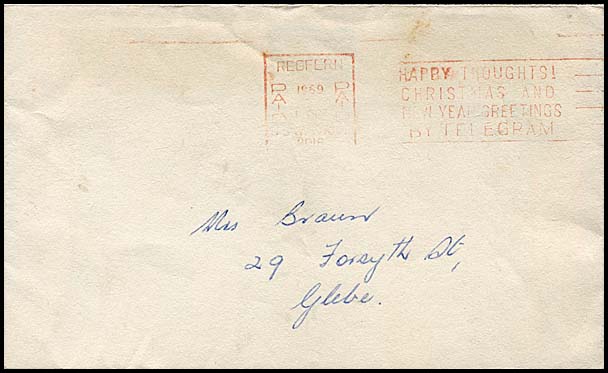 REDFERN
1969
PAID PAID
2016
HAPPY THOUGHTS!
CHRISTMAS AND
NEW YEAR GREETINGS
BY TELEGRAM
Mrs Braun
29 Forsyth St,
Glebe.